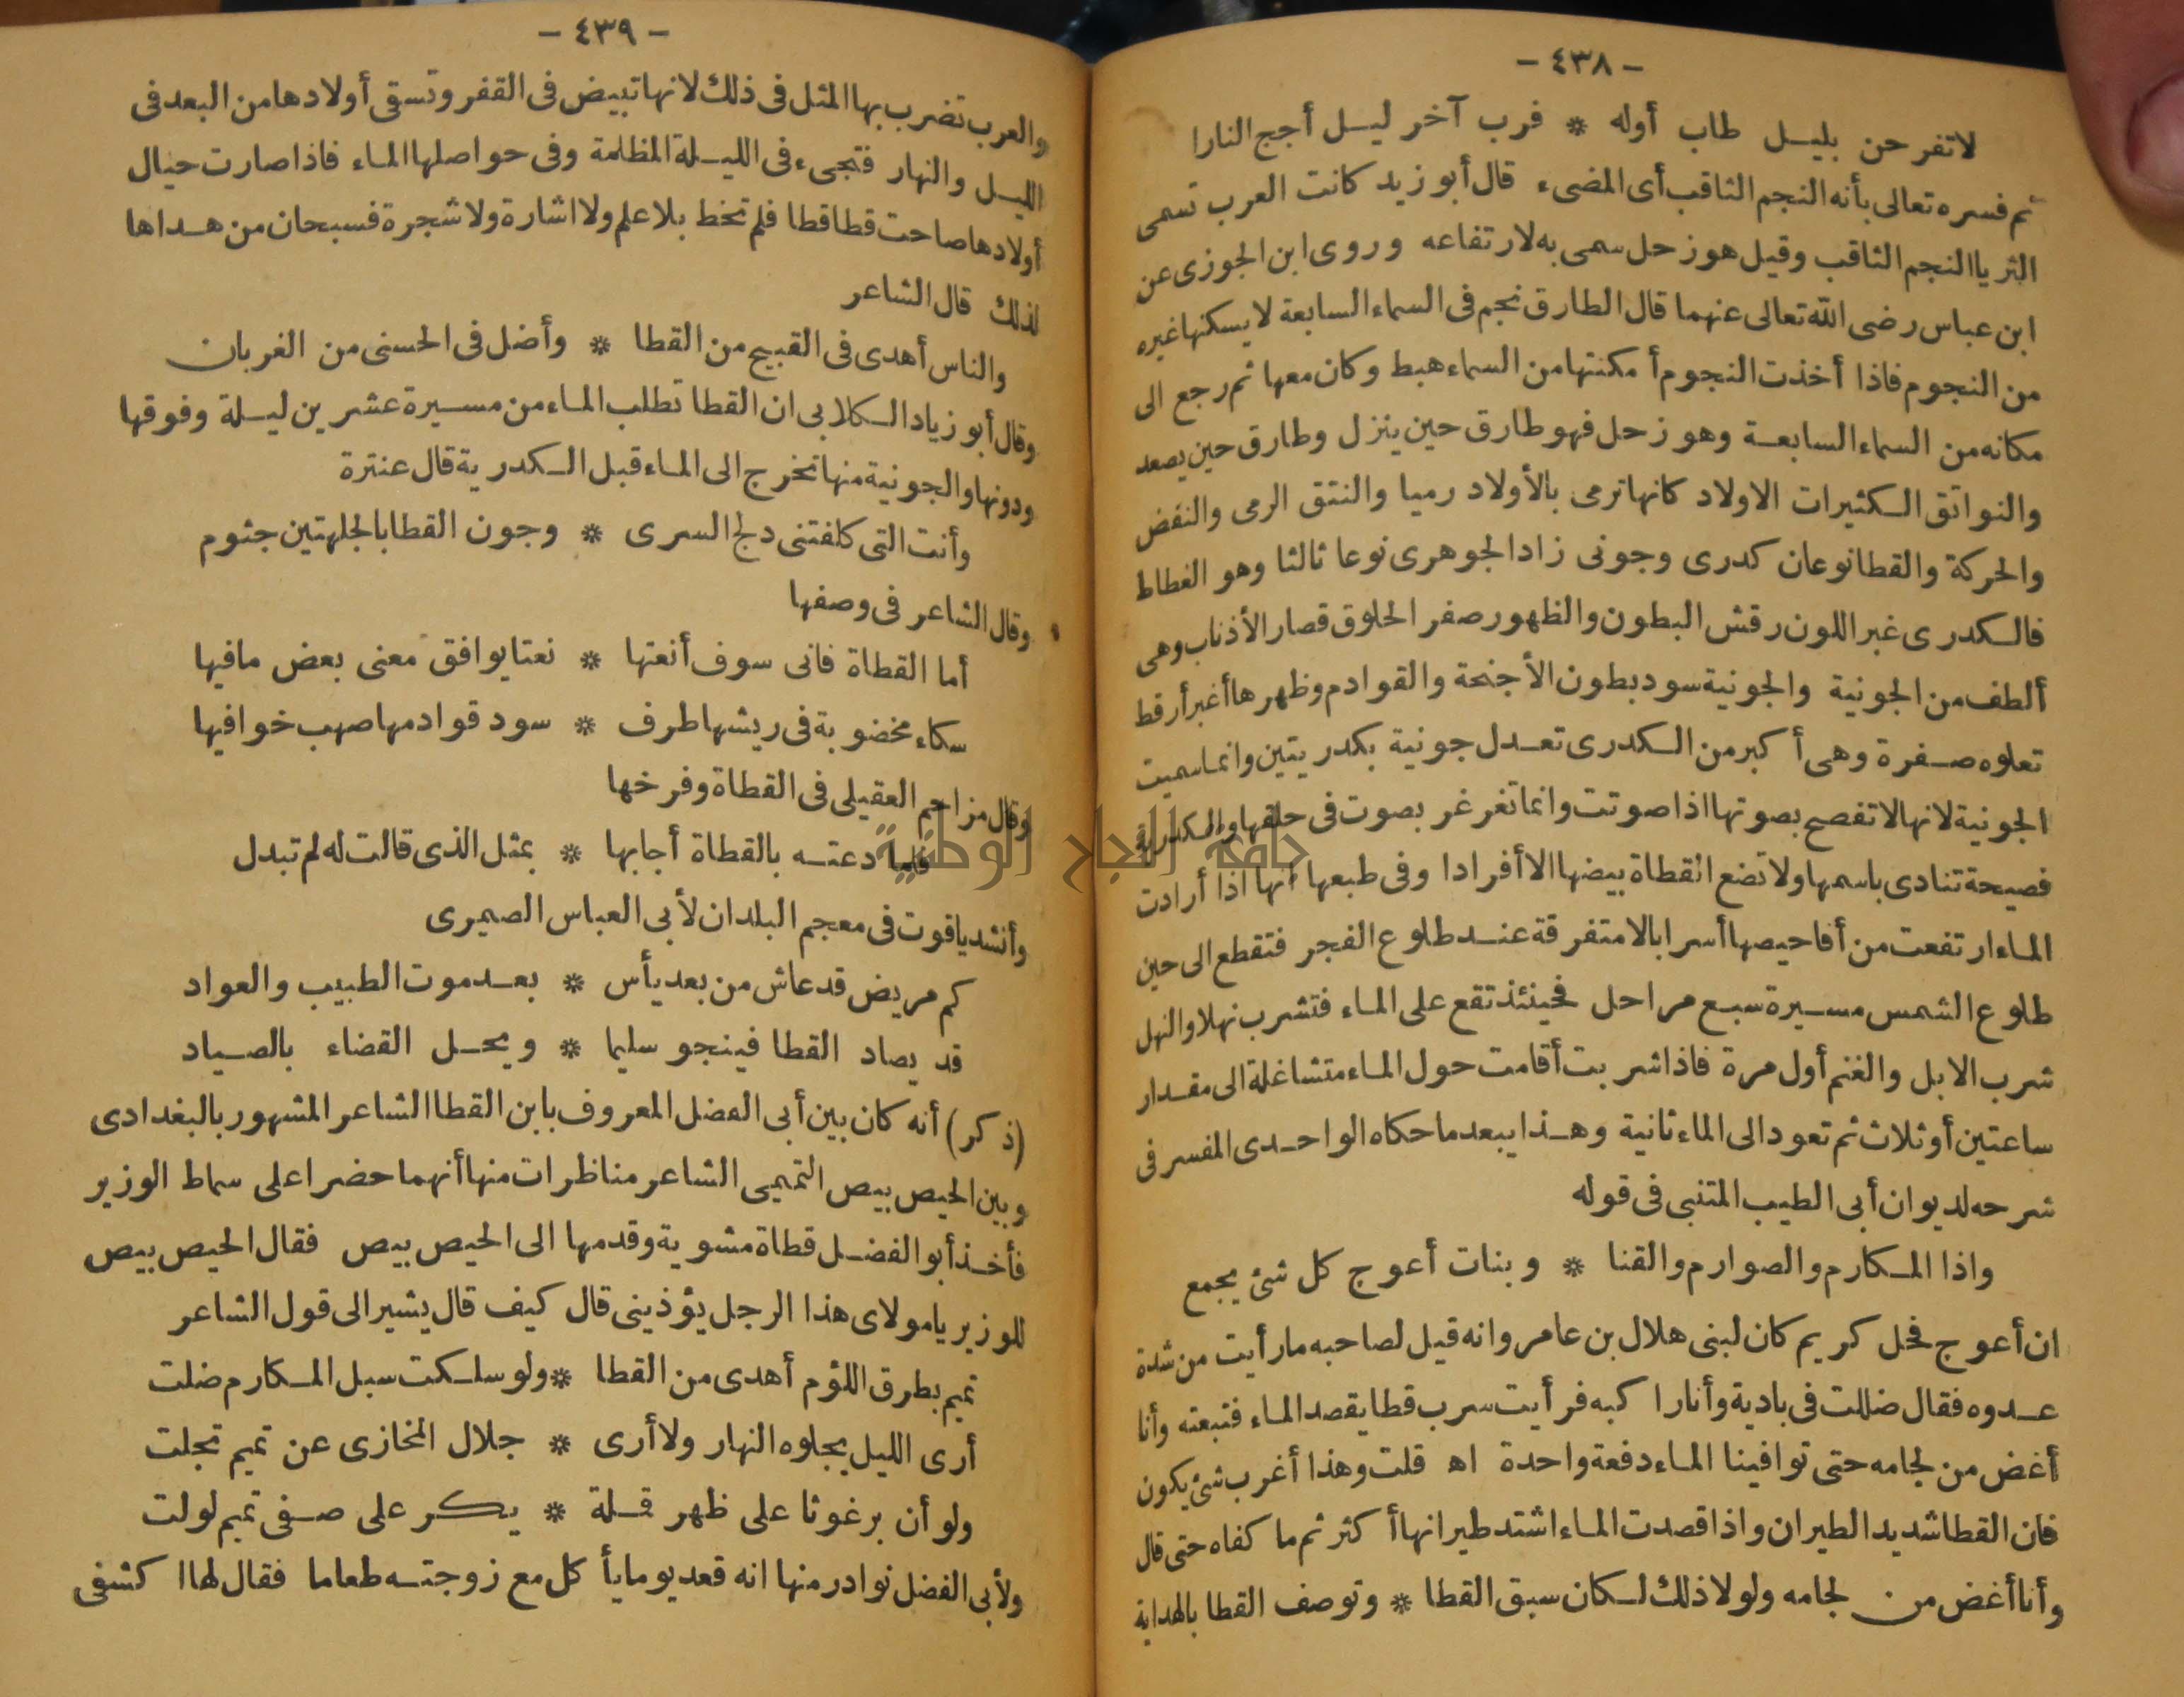 - ٤٣٨ -
لاتفرحن بليل طاب أوله * فرب آخر ليل أجج النارا
ثم فسره تعالى بأنه النجم الثاقب أى المضىء قال أبو زيد كانت العرب تسمى
الثريا النجم الثاقب وقيل هو زحل سمى به لارتفاعه وروى ابن الجوزى عن
ابن عباس رضى الله تعالى عنهما قال الطارق نجم فى السماء السابعة لا يسكنها غيره
من النجوم فاذا أخذت النجوم أمكنتها من السماء هبط وكان معها ثم رجع الى
مكانه من السماء السابعة وهو زحل فهو طارق حين ينزل وطارق حين يصعد
والنواتق الكثيرات الاولاد كانها ترمى بالأولاد رميا والنتق الرمى والنفض
والحركة والقطا نوعان كدرى وجونى زاد الجوهرى نوعا ثالثا وهو الغطاط
فالكدرى غبر اللون رقش البطون والظهور صفر الحلوق قصار الأذناب وهى
ألطف من الجونية والجونية سود بطون الأجنحة والقوادم وظهرها أغبر أرقط
تعلوه صفرة وهى أكبر من الكدرى تعدل جونية بكدريتين وانما سميت
الجونية لانها لا تفصح بصوتها اذا صوتت وانما تغرغر بصوت فى حلقها والكدرية
فصيحة تنادى باسمها ولا تضع القطاة بيضها الا أفرادا وفى طبعها أنها اذا أرادت
الماء ارتفعت من أفاحيصها أسرابا لا متفرقة عند طلوع الفجر فتقطع الى حين
طلوع الشمس مسيرة سبع مراحل فحينئذ تقع على الماء فتشرب نهلا والنهل
شرب الابل والغنم أول مرة فاذا شربت أقامت حول الماء متشاغلة الى مقدار
ساعتين أو ثلاث ثم تعود الى الماء ثانية وهذا يبعد ما حكاه الواحدى المفسر فى
شرحه لديوان أبى الطيب المتنبى فى قوله
واذا المكارم والصوارم والقنا * وبنات أعوج كل شئ يجمع
ان أعوج فحل كريم كان لبنى هلال بن عامر وانه قيل لصاحبه ما رأيت من شدة
عدوه فقال ضللت فى بادية وأنا راكبه فرأيت سرب قطا يقصد الماء فتبعته وأنا
أغض من لجامه حتى توافينا الماء دفعة واحدة اه قلت وهذا أغرب شئ يكون
فان القطا شديد الطيران واذا قصدت الماء اشتد طيرانها أكثر ثم ما كفاه حتى قال
وأنا أغض من لجامه ولولا ذلك لكان سبق القطا * وتوصف القطا بالهداية
- ٤٣٩ -
والعرب تضرب بها المثل فى ذلك لانها تبيض فى القفر وتسقى أولادها من البعد فى
الليل والنهار فتجىء فى الليلة المظلمة وفى حواصلها الماء فاذا صارت حيال
أولادها صاحت قطا قطا فلم تخط بلا علم ولا اشارة ولا شجرة فسبحان من هداها
لذلك قال الشاعر
والناس أهدى فى القبيح من القطا * وأضل فى الحسنى من الغربان
وقال أبو زياد الكلابى ان القطا تطلب الماء من مسيرة عشرين ليلة وفوقها
ودونها والجونية منها تخرج الى الماء قبل الكدرية قال عنترة
وأنت التى كلفتنى دلج السرى * وجون القطا بالجلهتين جثوم
وقال الشاعر فى وصفها
أما القطاة فانى سوف أنعتها * نعتا يوافق معنى بعض مافيها
سكاء مخضوبة فى ريشها طرف * سود قوادمها صهب خوافيها
وقال مزاحم العقيلى فى القطاة وفرخها
فلما دعته بالقطاة أجابها * بمثل الذى قالت له لم تبدل
وأنشد ياقوت فى معجم البلدان لأبى العباس الصميرى
كم مريض قد عاش من بعد يأس * بعد موت الطبيب والعواد
قد يصاد القطا فينجو سليما * ويحل القضاء بالصياد
(ذكر) أنه كان بين أبى الفضل المعروف بابن القطا الشاعر المشهور بالبغدادى
وبين الحيص بيص التميمى الشاعر مناظرات منها أنهما حضرا على سماط الوزير
فأخذ أبو الفضل قطاة مشوية وقدمها الى الحيص بيص فقال الحيص بيص
للوزير يا مولاى هذا الرجل يؤذينى قال كيف قال يشير الى قول الشاعر
تميم بطرق اللؤم أهدى من القطا * ولو سلكت سبل المكارم ضلت
أرى الليل يجلوه النهار ولا أرى * جلال المخازى عن تميم تجلت
ولو أن برغوثا على ظهر قملة * يكر على صفى تميم لولت
ولأبى الفضل نوادر منها انه قعد يوما يأكل مع زوجته طعاما فقال لها اكشفى
جامعة النجاح الوطنية